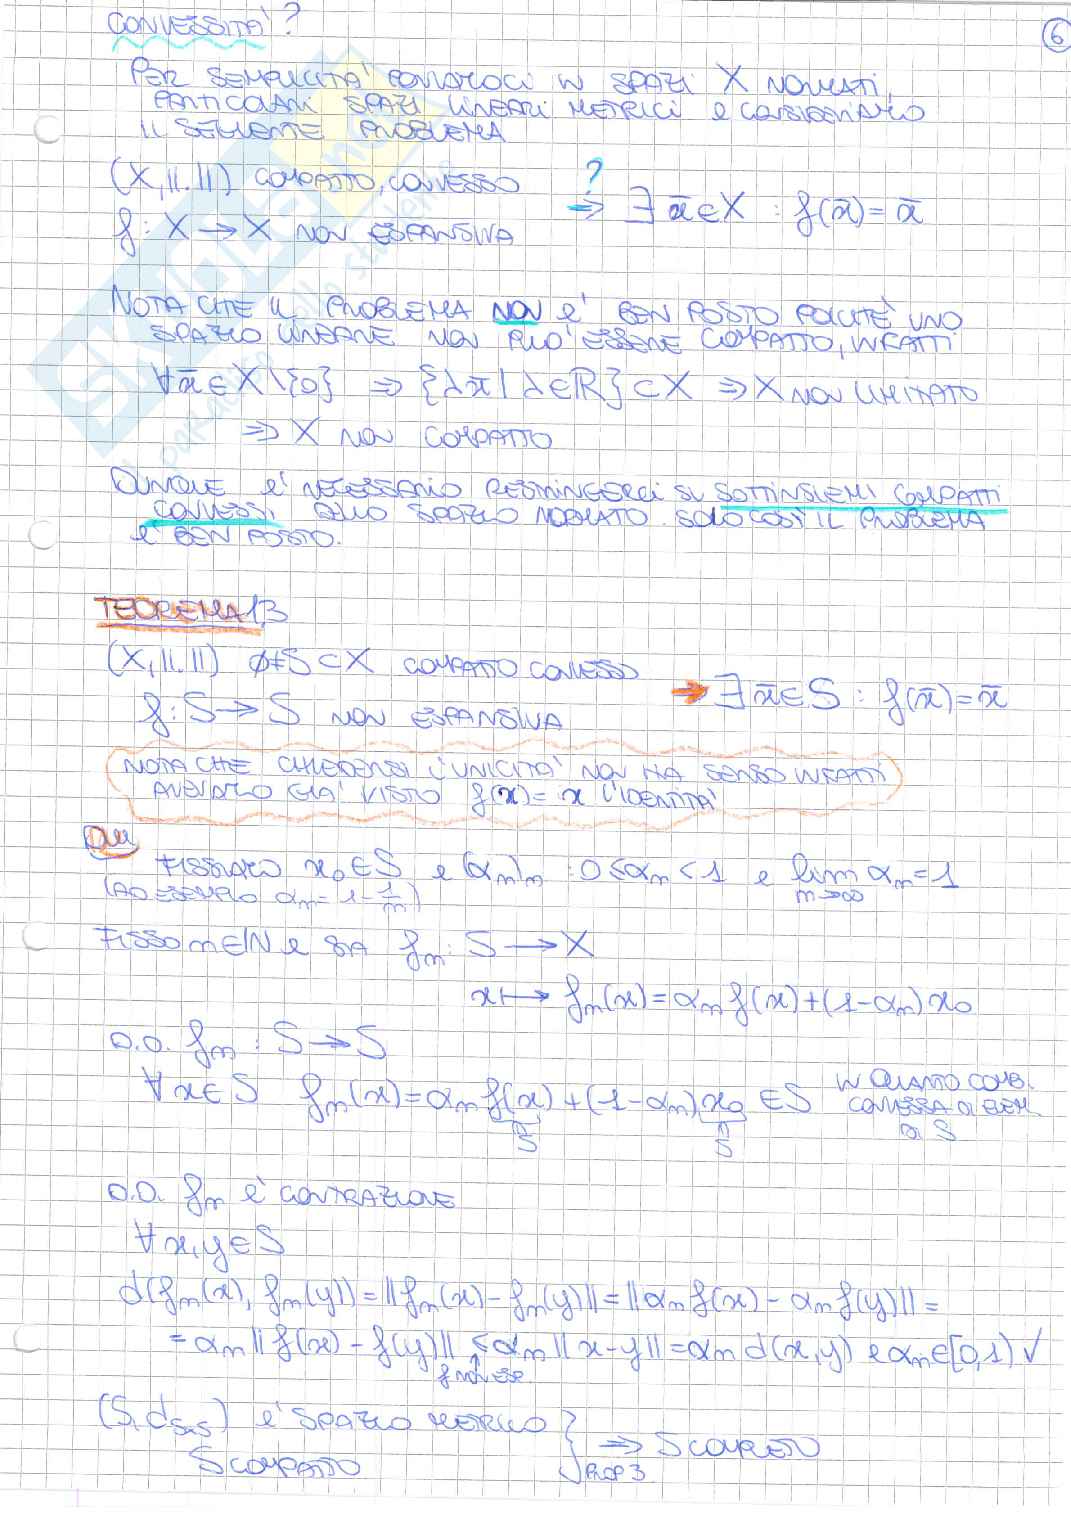 CONVESSITA'?
6
PER SEMPLICITA' PONIAMOCI IN SPAZI X NORMATI,
PARTICOLARI SPAZI LINEARI METRICI e CONSIDERIAMO
IL SEGUENTE PROBLEMA
(X, ||.||) COMPATTO, CONVESSO
?
⇒ ∃ x̄∈X : f(x̄) = x̄
f : X → X NON ESPANSIVA
NOTA CHE IL PROBLEMA NON e' BEN POSTO POICHE' UNO
SPAZIO LINEARE NON PUO' ESSERE COMPATTO, INFATTI
∀x̄∈X\{0} ⇒ {λx̄ | λ∈ℝ} ⊂ X ⇒ X NON LIMITATO
⇒ X NON COMPATTO
DUNQUE e' NECESSARIO RESTRINGERCI SU SOTTINSIEMI COMPATTI
CONVESSI DELLO SPAZIO NORMATO. SOLO COSI' IL PROBLEMA
e' BEN POSTO.
TEOREMA 1,3
(X, ||.||) ∅≠S⊂X COMPATTO CONVESSO
→ ∃ x̄∈S : f(x̄) = x̄
f : S → S NON ESPANSIVA
NOTA CHE CHIEDERSI L'UNICITA' NON HA SENSO INFATTI
AVEVAMO GIA' VISTO f(x) = x L'IDENTITA'
DIM
FISSIAMO x₀∈S e (αₙ)ₙ : 0≤αₙ<1 e lim αₙ = 1
n→∞
(AD ESEMPIO αₙ = 1 - 1/n)
FISSO n∈ℕ e SIA fₙ : S → X
x ↦ fₙ(x) = αₙ f(x) + (1-αₙ) x₀
D.D. fₙ : S → S
∀ x∈S fₙ(x) = αₙ f(x) + (1-αₙ) x₀ ∈ S IN QUANTO COMB.
CONVESSA DI ELEM.
DI S
∈ S ∈ S
D.D. fₙ e' CONTRAZIONE
∀ x,y∈S
d(fₙ(x), fₙ(y)) = ||fₙ(x) - fₙ(y)|| = ||αₙ f(x) - αₙ f(y)|| =
= αₙ || f(x) - f(y)|| ≤ αₙ || x-y || = αₙ d(x,y) e αₙ∈[0,1) ✓
f NON ESP.
(S, d_{S×S}) e' SPAZIO METRICO
S COMPATTO
⇒ S COMPLETO
PROP 3